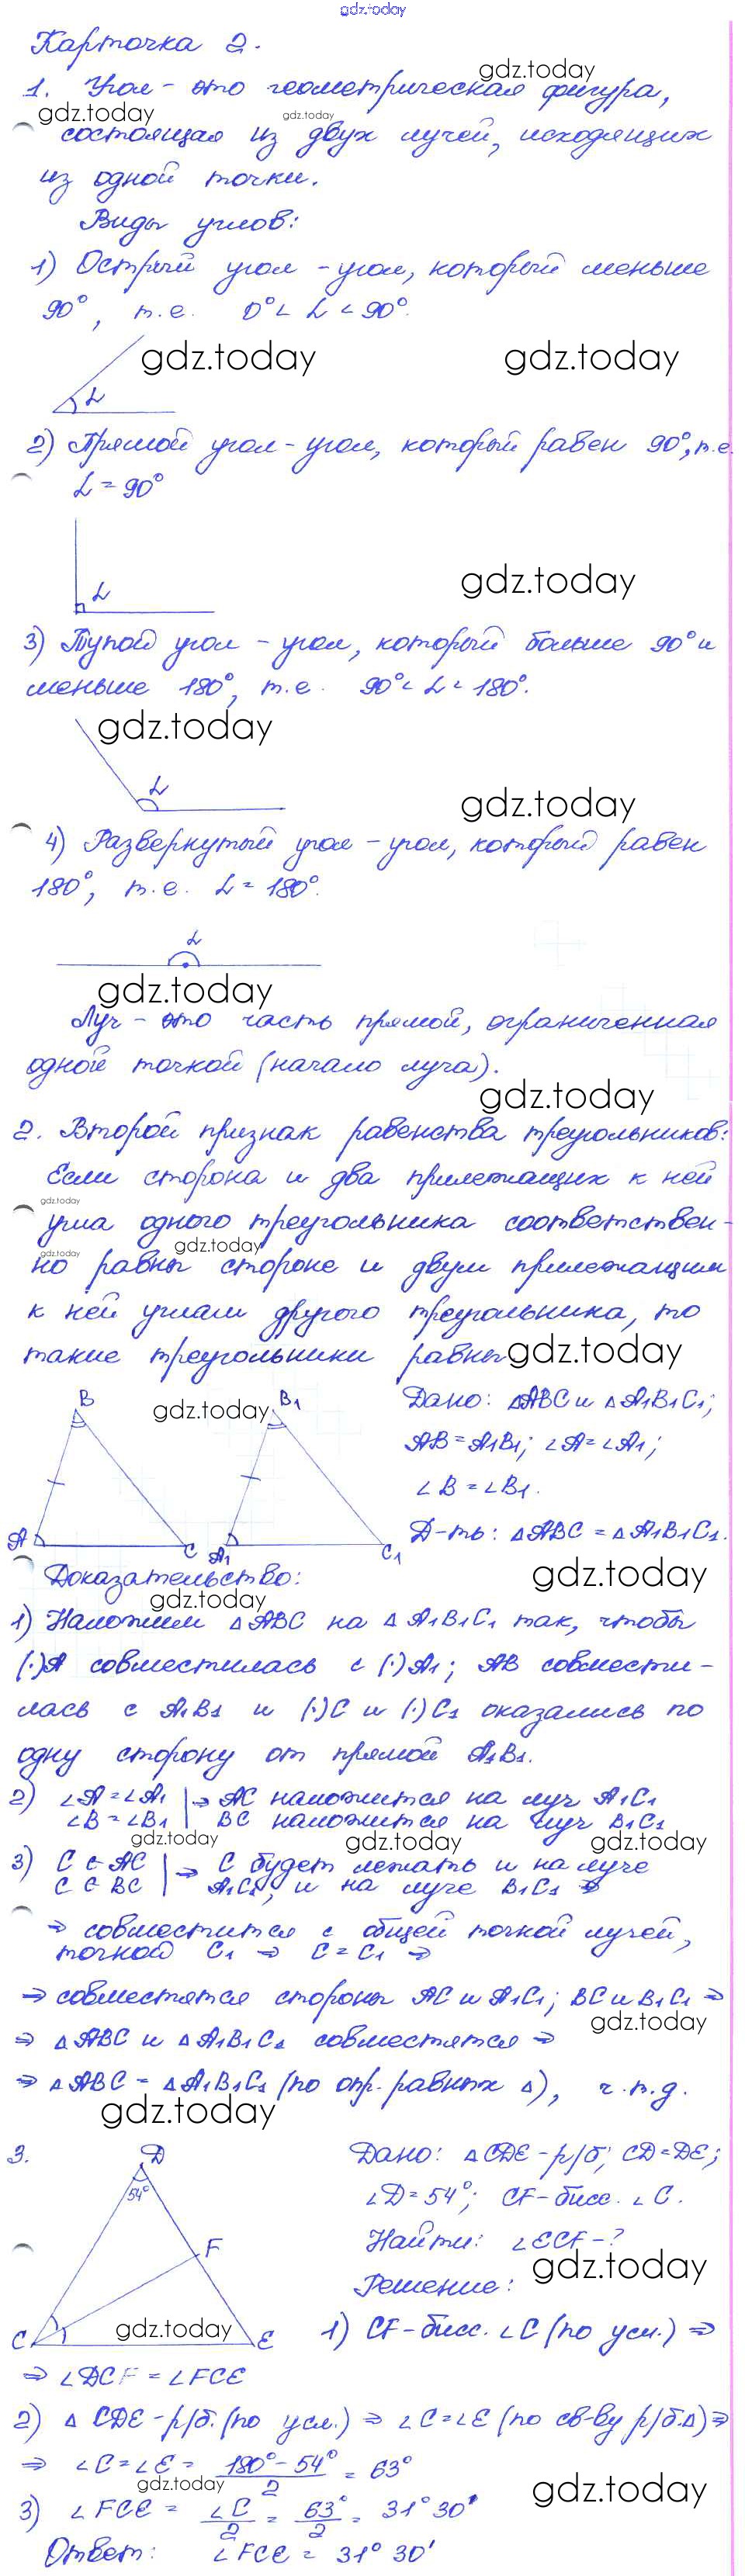 gdz.today
Карточка 2.
gdz.today
1. Угол - это геометрическая фигура,
gdz.today gdz.today
состоящая из двух лучей, исходящих
из одной точки.
Виды углов:
1) Острый угол - угол, который меньше
90°, т.е. 0° < α < 90°.
gdz.today gdz.today
α
2) Прямой угол - угол, который равен 90°, т.е.
α = 90°
gdz.today
α
3) Тупой угол - угол, который больше 90° и
меньше 180°, т.е. 90° < α < 180°.
gdz.today
α
gdz.today
4) Развернутый угол - угол, который равен
180°, т.е. α = 180°.
α
gdz.today
Луч - это часть прямой, ограниченная
одной точкой (начало луча).
gdz.today
2. Второй признак равенства треугольников:
Если сторона и два прилежащих к ней
gdz.today
угла одного треугольника соответствен-
gdz.today gdz.today
но равны стороне и двум прилежащим
к ней углам другого треугольника, то
такие треугольники равны
gdz.today
B B1
gdz.today
Дано: ΔABC и ΔA1B1C1;
AB = A1B1; ∠A = ∠A1;
∠B = ∠B1.
A C A1 C1
Д-ть: ΔABC = ΔA1B1C1.
Доказательство:
gdz.today
gdz.today
1) Наложим ΔABC на ΔA1B1C1 так, чтобы
(·)A совместилась с (·)A1; AB совмести-
лась с A1B1 и (·)C и (·)C1 оказались по
одну сторону от прямой A1B1.
2) ∠A = ∠A1 | ⇒ AC наложится на луч A1C1
∠B = ∠B1 | BC наложится на луч B1C1
gdz.today gdz.today gdz.today
3) C ∈ AC | ⇒ C будет лежать и на луче
C ∈ BC | A1C1, и на луче B1C1 ⇒
⇒ совместится с общей точкой лучей,
точкой C1 ⇒ C = C1 ⇒
⇒ совместятся стороны AC и A1C1; BC и B1C1 ⇒
gdz.today
⇒ ΔABC и ΔA1B1C1 совместятся ⇒
⇒ ΔABC = ΔA1B1C1 (по опр. равных Δ), ч.т.д.
gdz.today
3.
D
54°
F
C E
Дано: ΔCDE - р/б; CD = DE;
∠D = 54°; CF - бисс. ∠C.
Найти: ∠ECF - ?
gdz.today
Решение:
gdz.today
1) CF - бисс. ∠C (по усл.) ⇒
⇒ ∠DCF = ∠FCE
2) Δ CDE - р/б. (по усл.) ⇒ ∠C = ∠E (по св-ву р/б.Δ) ⇒
⇒ ∠C = ∠E = (180° - 54°)/2 = 63°
gdz.today gdz.today
3) ∠FCE = ∠C/2 = 63°/2 = 31° 30'
Ответ: ∠FCE = 31° 30'